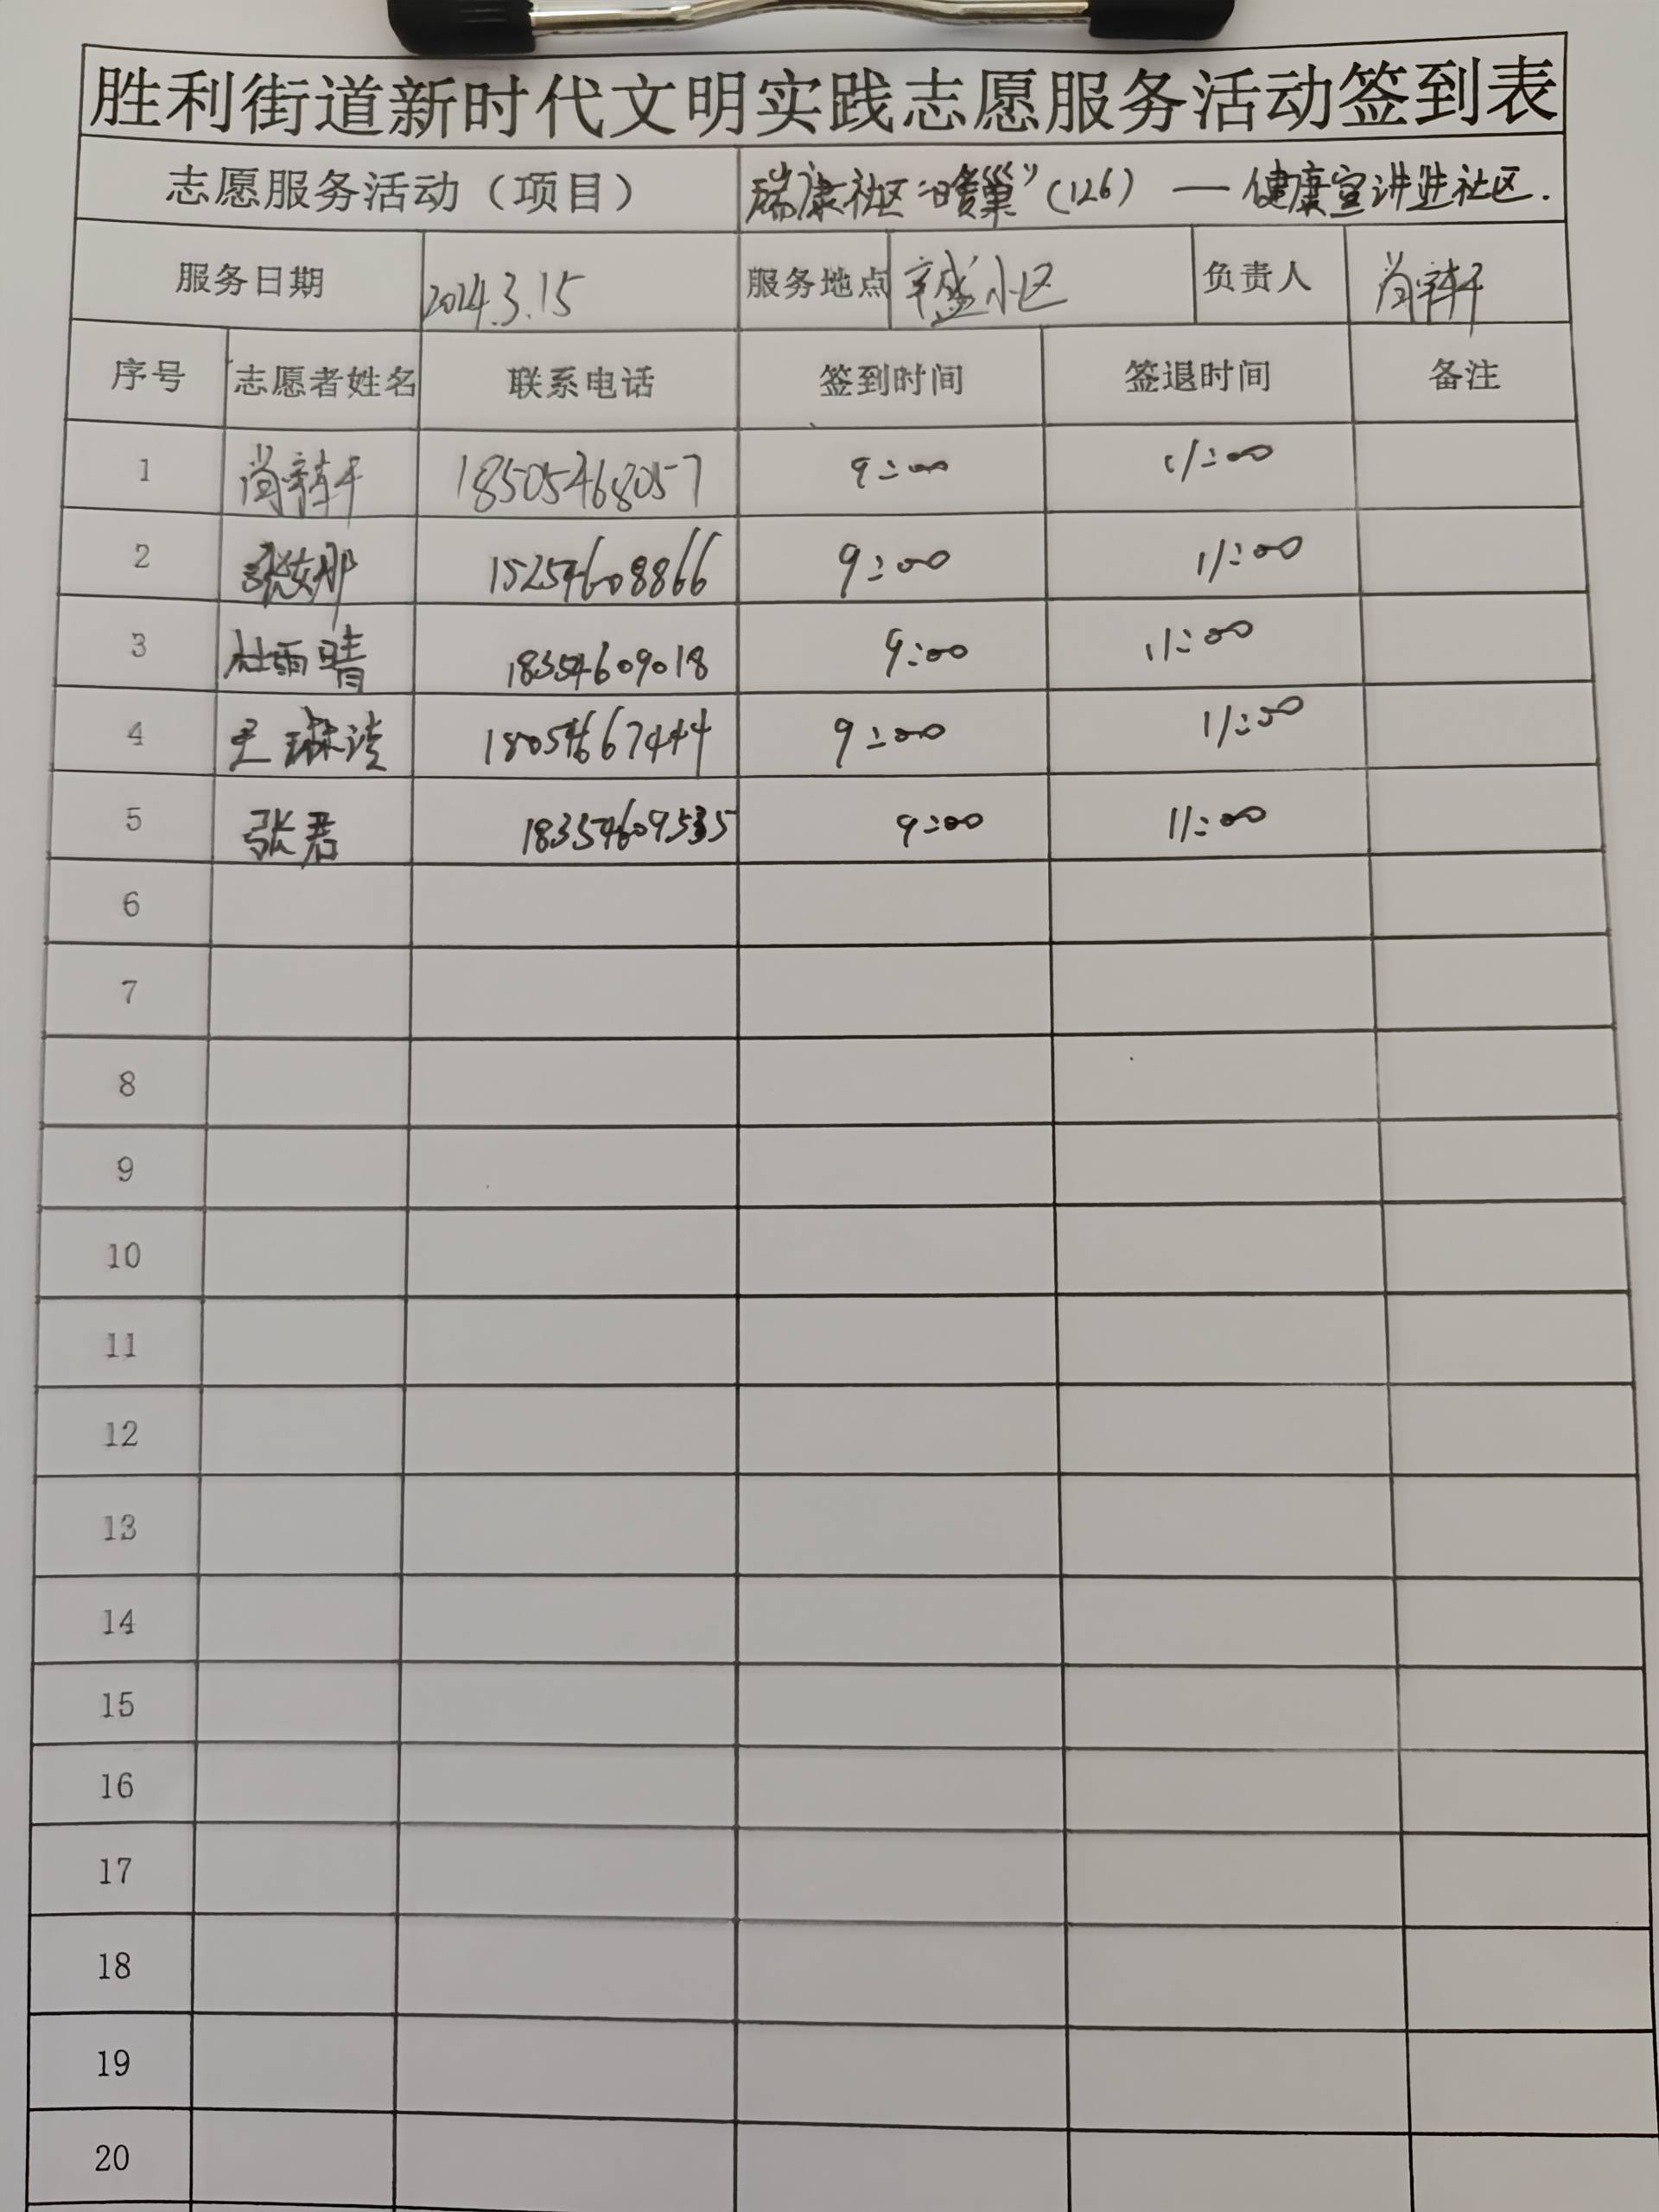 胜利街道新时代文明实践志愿服务活动签到表
志愿服务活动（项目） 瑞康社区“暖巢”（126）— 健康宣讲进社区.
服务日期 2024.3.15 服务地点 辛盛小区 负责人 尚
序号 志愿者姓名 联系电话 签到时间 签退时间 备注
1 尚 18505468057 9:00 11:00
2 张娜 15254608866 9:00 11:00
3 杜雨晴 18354609018 9:00 11:00
4 王琳 18054667444 9:00 11:00
5 张君 18354609535 9:00 11:00
6
7
8
9
10
11
12
13
14
15
16
17
18
19
20